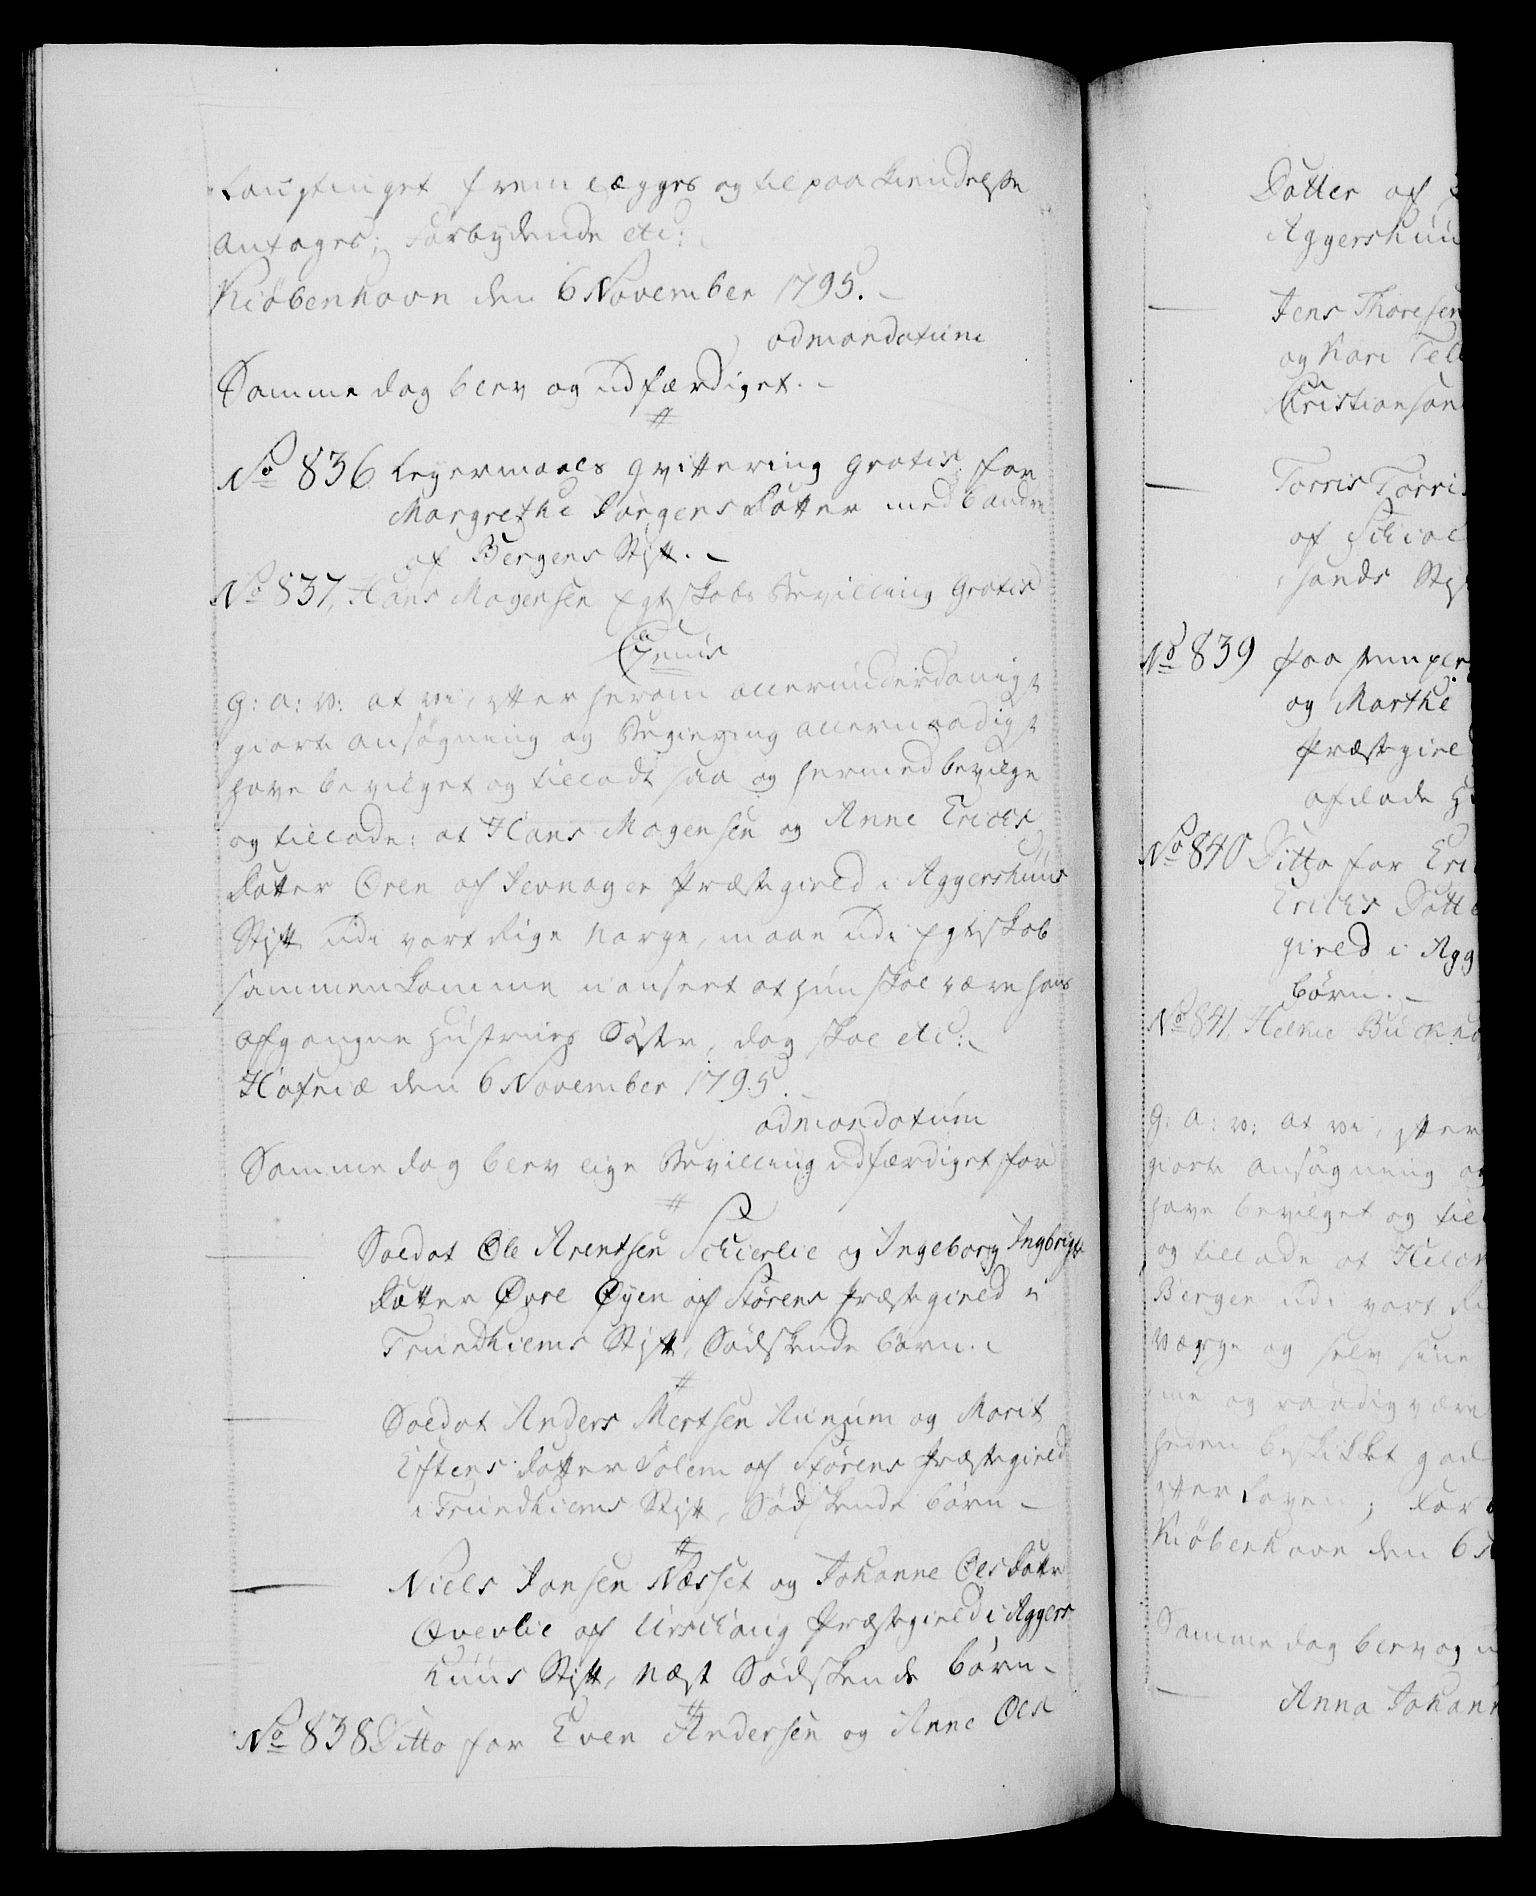 Laugtinget fremlægges og til paakiendelse
antages; Forbydende etc:
Kiøbenhavn den 6 November 1795.
ad mandatum
Samme dag blev og udfærdiget.
No 836 Leyermaals Qvittering gratis for
Margrethe Jørgens Datter med 6 andre
af Bergens Stift.
No 837, Hans Mogensen Egteskabs Bevilling Gratis
Genuis
G: A: V: at vi, efter herom allerunderdanigst
giorte ansøgning og Begiering allernaadigst
have bevilget og tilladt saa og hermed bevilge
og tillade: at Hans Mogensen og Anne Erichs
Datter Øren af Jevnager Præstegield i Aggershuus
Stift udi vort Rige Norge, maae udi Egteskab
sammenkomme uanseet at hun skal være hans
afgangne Hustrues Søster, dog skal etc:
Hafniæ den 6 November 1795.
ad mandatum
Samme dag blev lige Bevilling udfærdiget for
Soldat Ole Arentsen Schierlie og Ingeborg Ingbrigts
Datter Øvre Øyen af Størens Præstegield i
Trundhiems Stift, Sødskende børn.
Soldat Anders Mertsen Aunum og Marit
Estens Datter Solem af Størens Præstegield
i Trundhiems Stift, Sødskende børn
Niels Jansen Næsset og Johanne Ols Datter
Øverlie af Urschoug Præstegield i Aggers
huus Stift, Næst Sødskende børn
No 838 Ditto for Even Andersen og Anne Ols
Datter af
Aggershuu
Jens Thoresen
og Kari Tell
Christiansan
Torris Torris
af
sands Sti
No 839 paa
og Marthe
Præstegiel
afdøde H
No 840 Ditto for Eri
Erichs Datte
gield i Agg
børn.
No 841, Helkie Buckho
G: A: V: at vi, efter
giorte ansøgning og
have bevilget og til
og tillade at
Bergen udi vort Ri
Værge og selv sine
me og raadig være
heden beskikket god
efter Loven; For
Kiøbenhavn den 6
Samme dag blev og u
Anna Johann